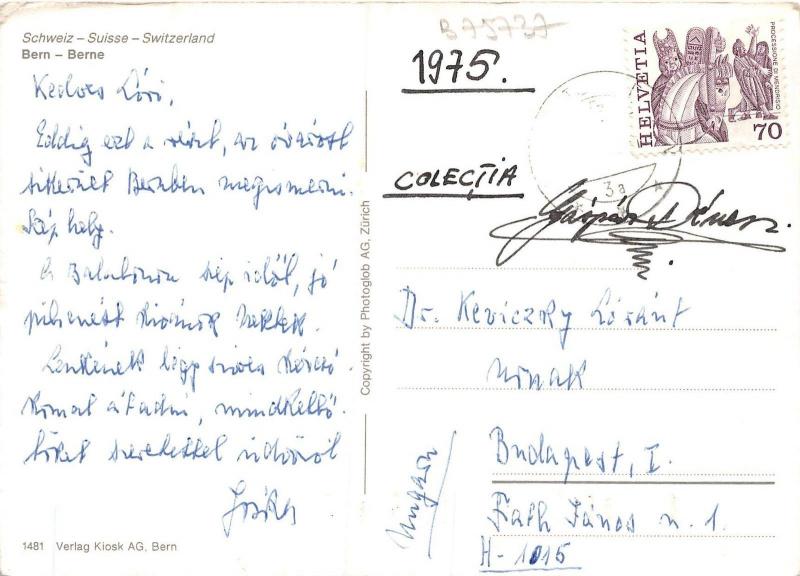 Schweiz – Suisse – Switzerland
Bern – Berne
Kedves Lóri,
Eddig ezt a részt, az óvárost
sikerült Bernben megismerni.
Szép hely.
A Balatonon szép időt, jó
pihenést kívánok Nektek.
Lenkének légy szíves kézcsó-
komat átadni, mindkettő-
töket szeretettel üdvözöl
1481 Verlag Kiosk AG, Bern
Copyright by Photoglob AG, Zürich
B 75737
1975.
COLECȚIA
Gáspár Dénes.
HELVETIA
PROCESSIONE DI MENDRISIO
70
3a
Dr. Keviczky Lóránt
úrnak
Budapest, I.
Fáth János u. 1.
H-1015
Ungarn